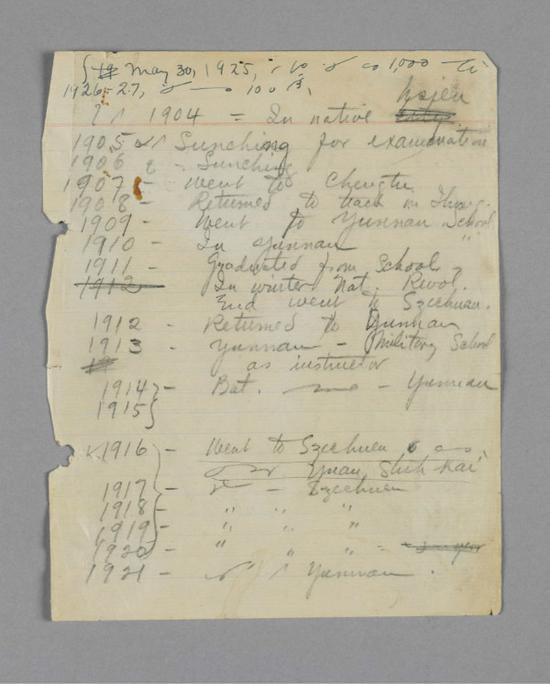 May 30, 1925, 1,000
1926-27, 100
hsien
1904 = In native
1905 Sunching for examination
1906 - Sunching
1907 - Went to Chengtu
1908 - Returned to teach in
1909 - Went to Yunnan School
1910 - In Yunnan "
1911 - Graduated from School
1912 In winter Nat. Revol.
End went to Szechuan.
1912 - Returned to Yunnan
1913 - Yunnan - Military School
as instructor
1914 - Bat. - Yunnan
1915
1916 - Went to Szechuen
Yuan Shih Kai
1917 - - Szechuen
1918 - " " "
1919 -
1920 - " " " -
1921 - Yunnan.